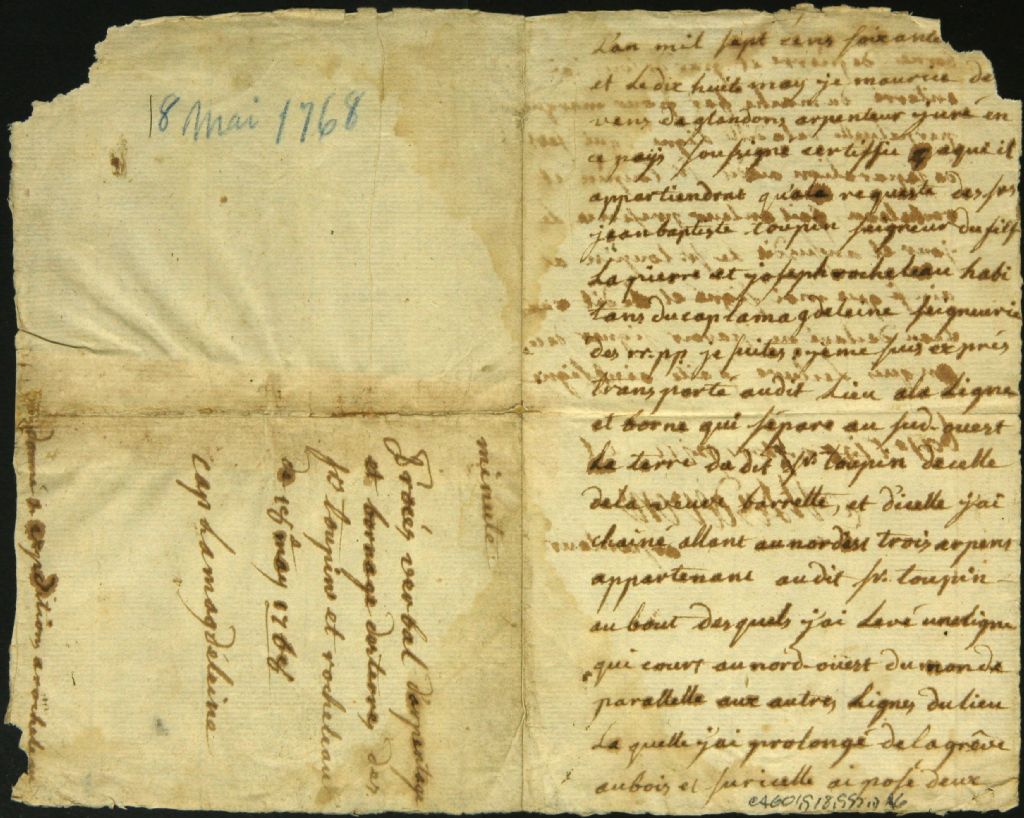 18 Mai 1768
minute
Procés verbal d'arpentage
et bornage des terres des
srs toupins et rocheleau
ce 18 may 1768
cap Lamagdeleine
donné 2 expeditions a rocheleau
L'an mil sept cens soixante
et Le dix huit may je maurice de
vens deglandons arpenteur juré en
ce païs soussigné certiffie a qui il
appartiendrat qu'ala requeste des srs
jean baptiste toupin seigneur du
Lapierre et joseph rocheleau habi
tans du cap lamagdeleine seigneurie
des rr. pp. jesuites, je me suis exprés
transporté audit Lieu ala Ligne
et borne qui sépare au sud-ouest
La terre dudit sr. toupin de celle
de la veuve barrette, et d'icelle j'ai
chainé allant au nordest trois arpens
appartenant audit sr. toupin
au bout desquels j'ai Levé une ligne
qui cours au nord-oüest du monde
parallelle aux autres Lignes du lieu
La quelle j'ai prolongé de la grêve
au bois et sur icelle ai posé deux